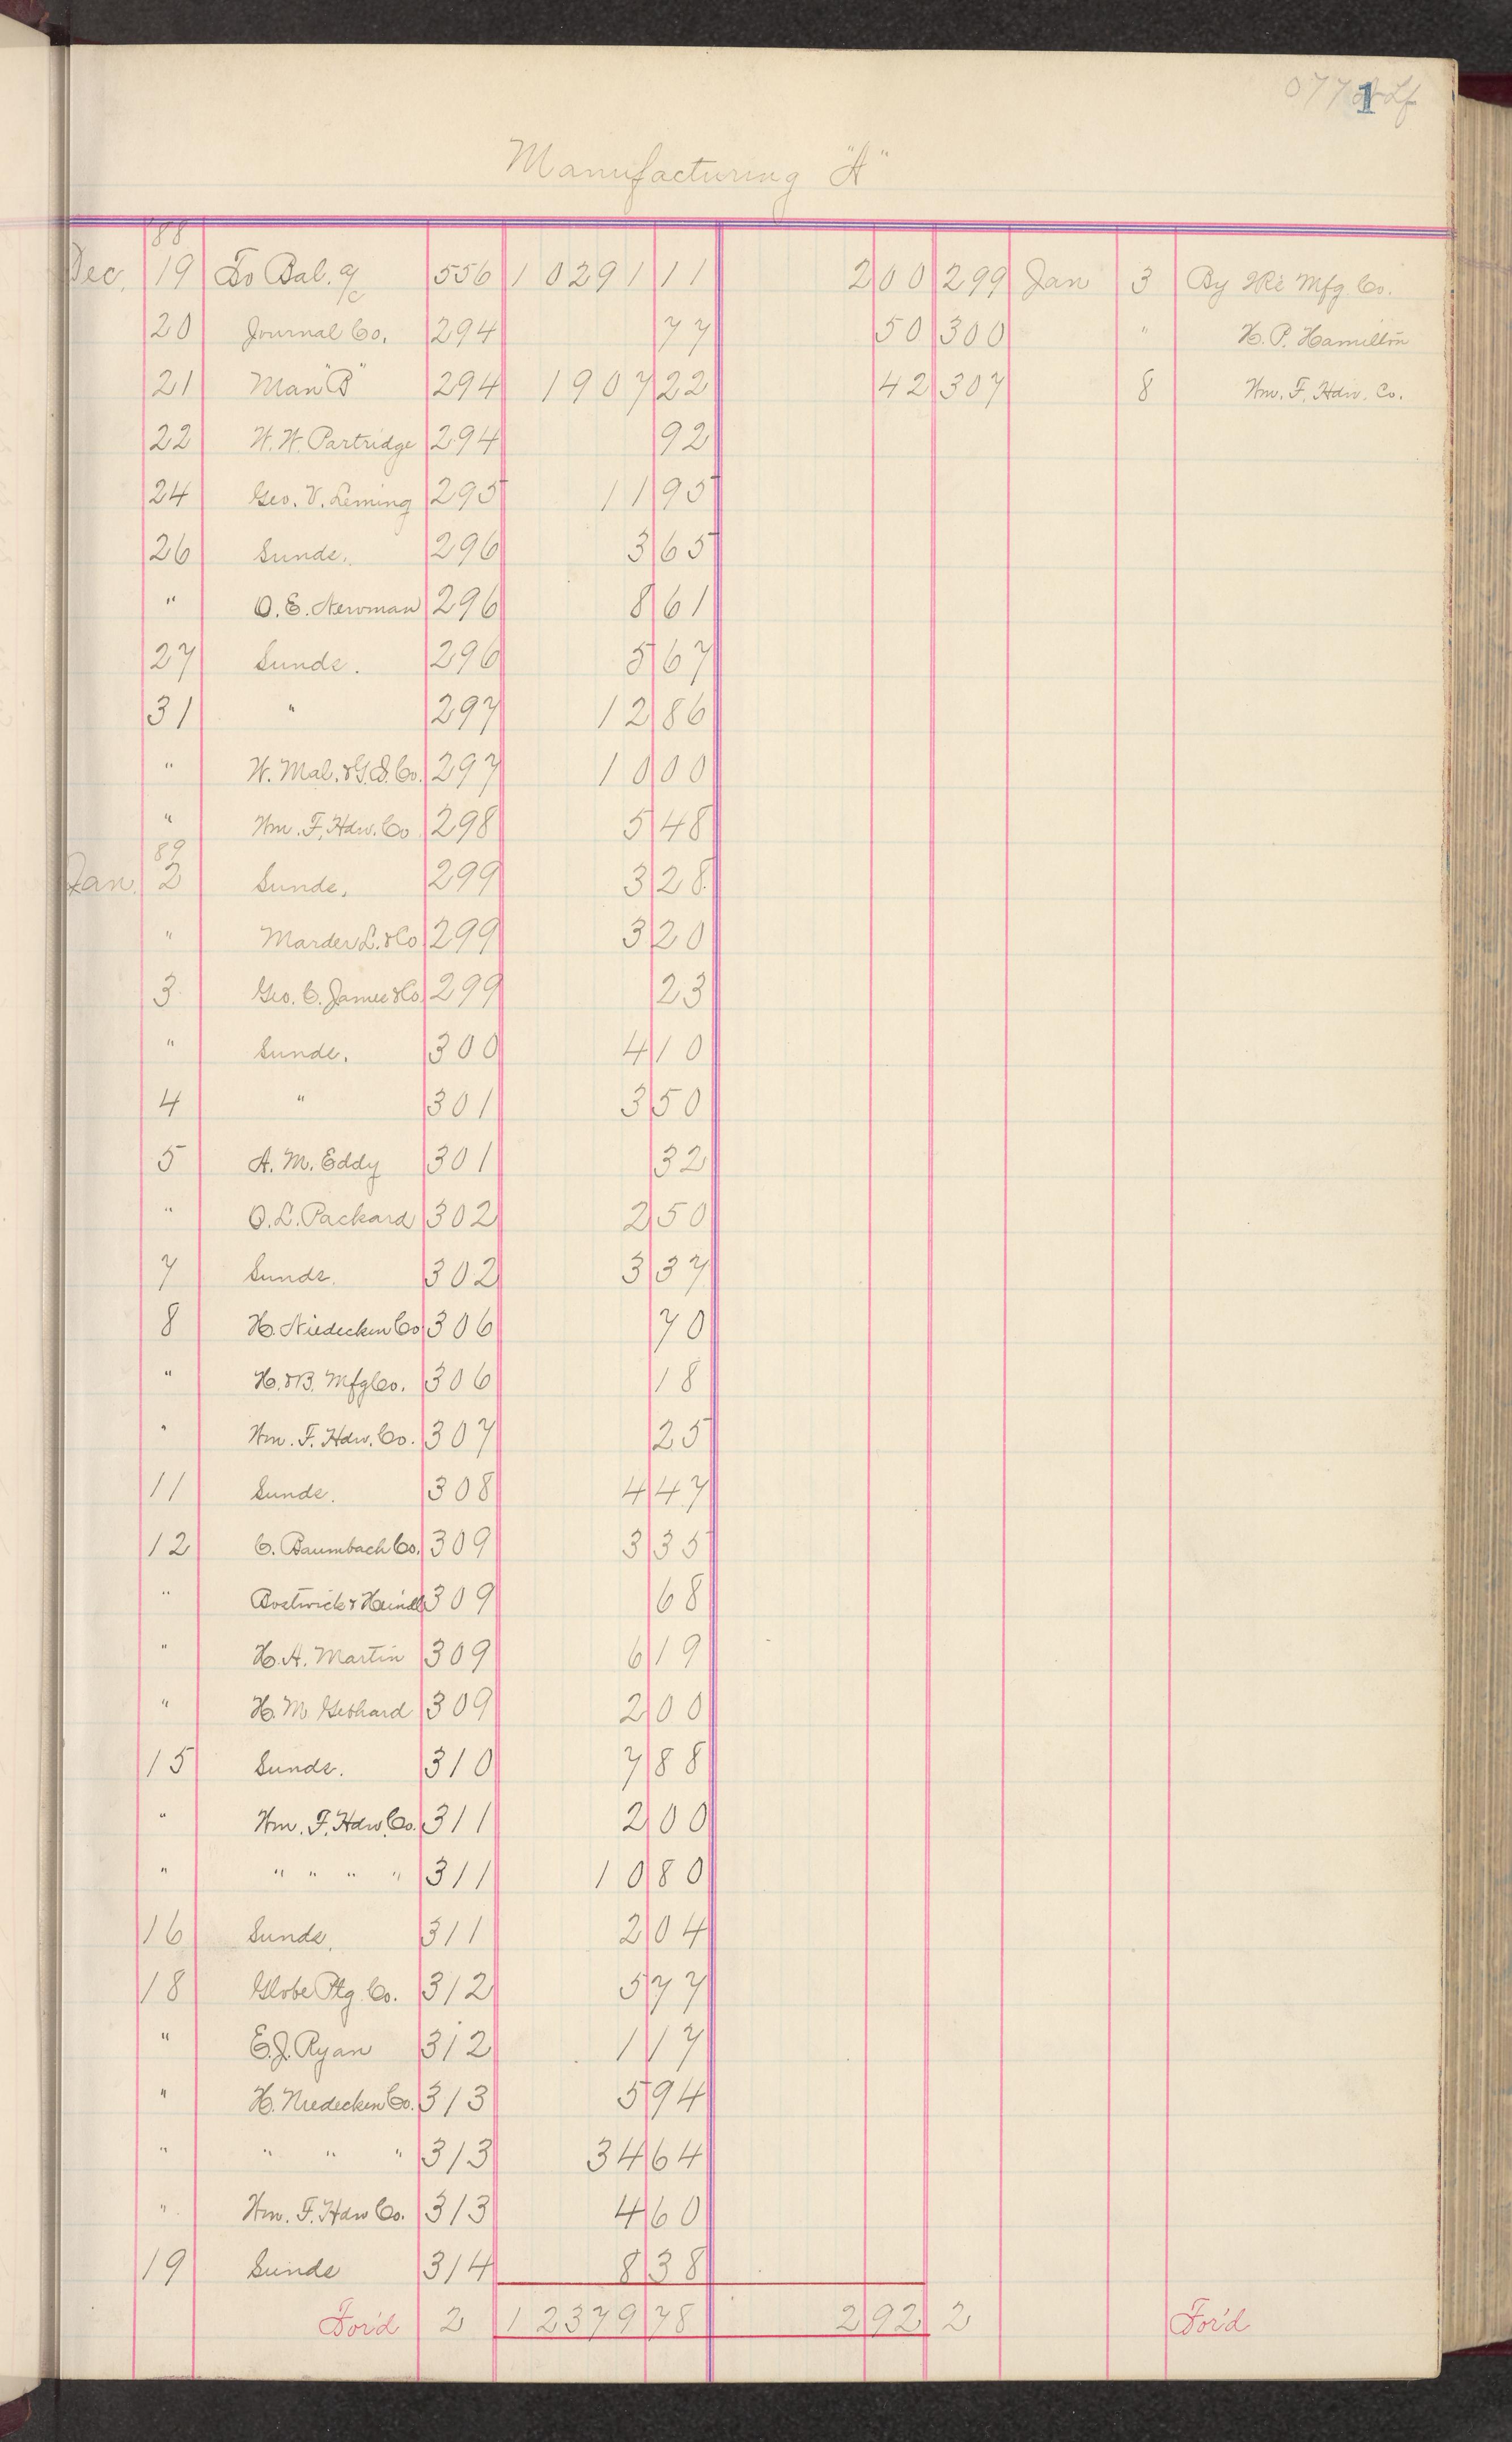 1
Manufacturing "A"
88
Dec. 19 To Bal. a/c 556 10291 11 2 00 299 Jan 3 By Mfg. Co.
20 Journal Co. 294 77 50 300 " H. P. Hamilton
21 Man "B" 294 1907 22 42 307 8 Wm. F. Hdw. Co.
22 W. W. Partridge 294 92
24 Geo. V. Leming 295 11 95
26 Sunds. 296 3 65
" O. E. Newman 296 8 61
27 Sunds. 296 5 67
31 " 297 12 86
" W. Mal. & G. S. Co. 297 10 00
" Wm. F. Hdw. Co 298 5 48
89
Jan. 2 Sunds. 299 3 28
" Marder L. & Co 299 3 20
3 Geo. C. James & Co 299 23
" Sunds. 300 4 10
4 " 301 3 50
5 A. M. Eddy 301 32
" O. L. Packard 302 2 50
7 Sunds. 302 3 37
8 H. Niedecken Co 306 70
" H. & B. Mfg Co. 306 18
" Wm. F. Hdw. Co. 307 25
11 Sunds. 308 4 47
12 C. Baumbach Co. 309 3 35
" Bostwick & 309 68
" H. A. Martin 309 6 19
" H. M. Gebhard 309 2 00
15 Sunds. 310 7 88
" Wm. F. Hdw. Co. 311 2 00
" " " " " 311 10 80
16 Sunds. 311 2 04
18 Globe Ptg. Co. 312 5 77
" E. J. Ryan 312 1 17
" H. Niedecken Co. 313 5 94
" " " " 313 34 64
" Wm. F. Hdw Co. 313 4 60
19 Sunds 314 8 38
For'd 2 12379 78 2 92 2 For'd